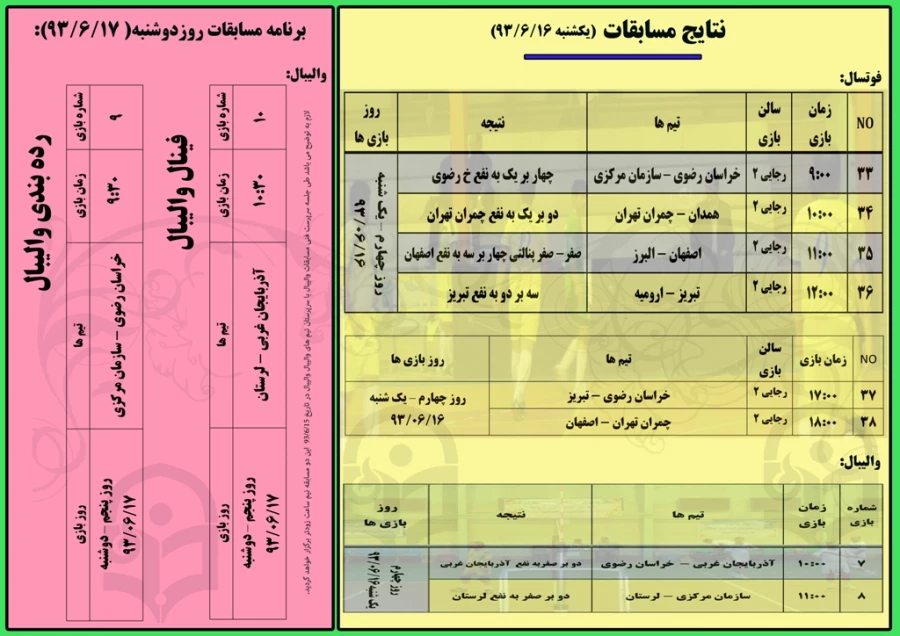 نتایج مسابقات (یکشنبه ۹۳/۶/۱۶)
فوتسال:
NO زمان بازی سالن بازی تیم ها نتیجه روز بازی ها
۳۳ ۹:۰۰ رجایی ۲ خراسان رضوی – سازمان مرکزی چهار بر یک به نفع خ رضوی
۳۴ ۱۰:۰۰ رجایی ۲ همدان – چمران تهران دو بر یک به نفع چمران تهران
۳۵ ۱۱:۰۰ رجایی ۲ اصفهان – البرز صفر – صفر پنالتی چهار بر سه به نفع اصفهان
۳۶ ۱۲:۰۰ رجایی ۲ تبریز – ارومیه سه بر دو به نفع تبریز
روز چهارم – یک شنبه
۹۳/۰۶/۱۶
NO زمان بازی سالن بازی تیم ها روز بازی ها
۳۷ ۱۷:۰۰ رجایی ۲ خراسان رضوی – تبریز
۳۸ ۱۸:۰۰ رجایی ۲ چمران تهران – اصفهان
روز چهارم – یک شنبه
۹۳/۰۶/۱۶
والیبال:
شماره بازی زمان بازی تیم ها نتیجه روز بازی ها
۷ ۱۰:۰۰ آذربایجان غربی – خراسان رضوی دو بر صفر به نفع آذربایجان غربی
۸ ۱۱:۰۰ سازمان مرکزی – لرستان دو بر صفر به نفع لرستان
روز چهارم
یک شنبه ۹۳/۰۶/۱۶
برنامه مسابقات روز دوشنبه (۹۳/۶/۱۷):
والیبال:
رده بندی والیبال
شماره بازی زمان بازی تیم ها روز بازی
۹ ۹:۳۰ خراسان رضوی – سازمان مرکزی روز پنجم – دوشنبه
۹۳/۰۶/۱۷
فینال والیبال
شماره بازی زمان بازی تیم ها روز بازی
۱۰ ۱۰:۳۰ آذربایجان غربی – لرستان روز پنجم – دوشنبه
۹۳/۰۶/۱۷
لازم به توضیح می باشد طی جلسه سرپرست فنی مسابقات والیبال با سرپرستان تیم های والیبال در تاریخ 93/6/15 این دو مسابقه نیم ساعت زودتر برگزار خواهد گردید.